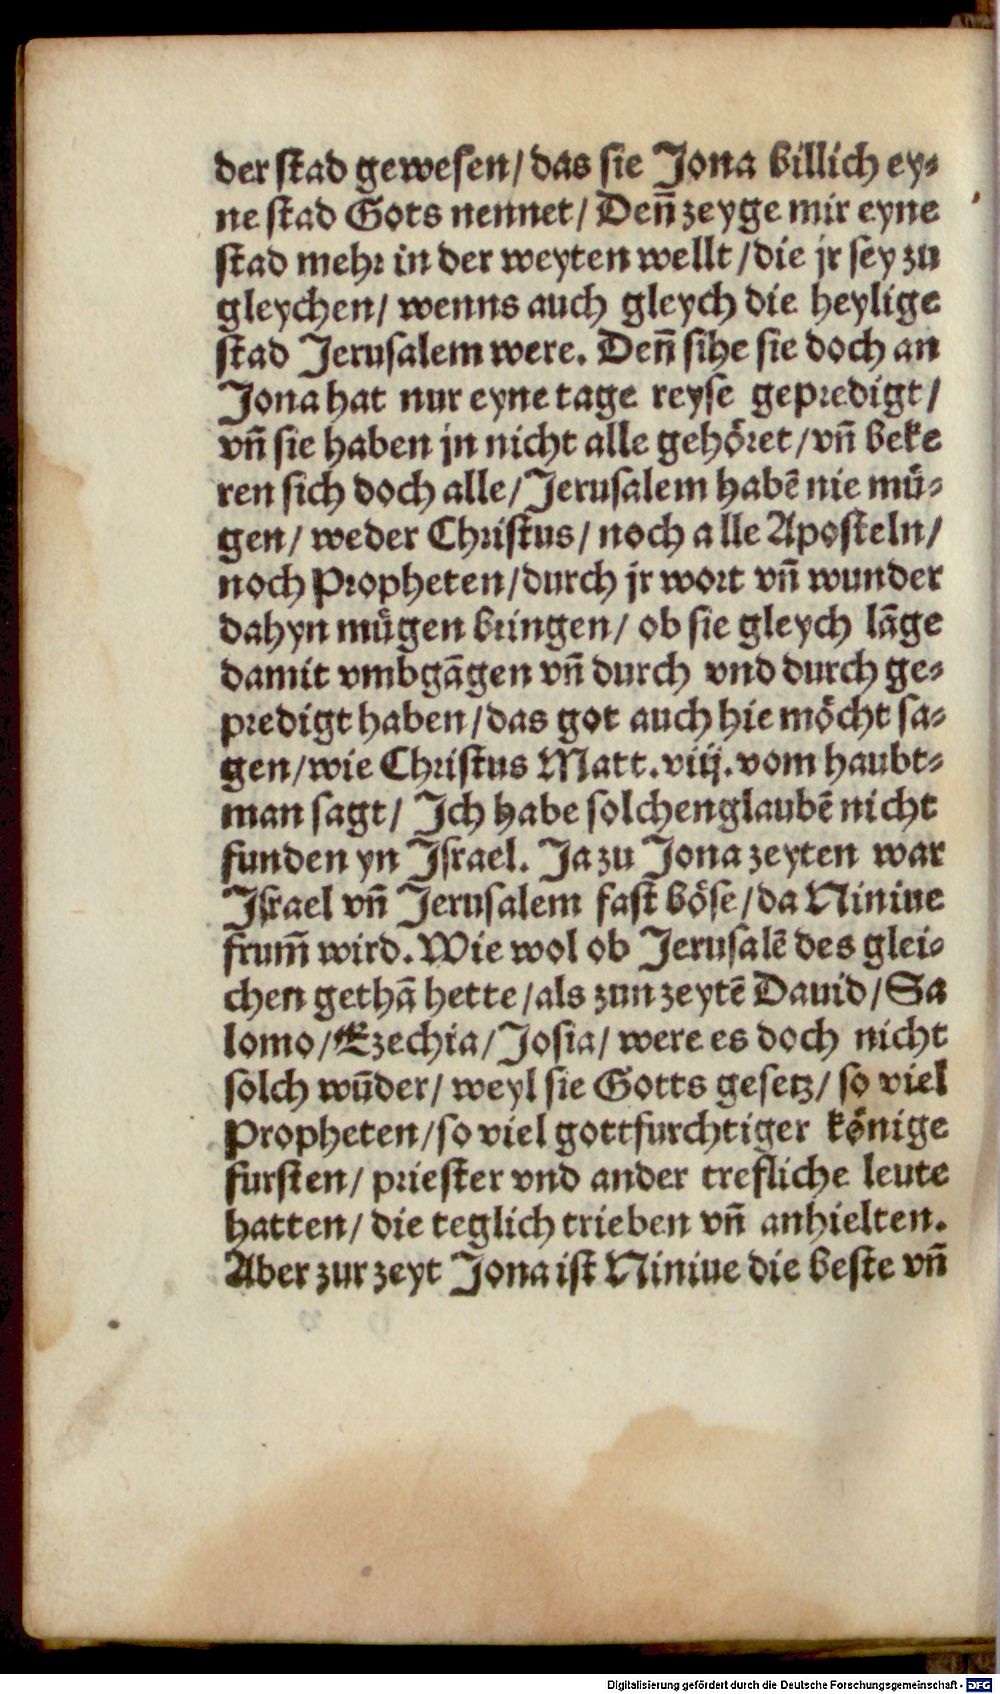 der stad gewesen/ das sie Jona billich ey-
ne stad Gots nennet/ Deñ zeyge mir eyne
stad mehr in der weyten wellt/ die jr sey zu
gleychen/ wenns auch gleych die heylige
stad Jerusalem were. Deñ sihe sie doch an
Jona hat nur eyne tage reyse gepredigt/
vñ sie haben jn nicht alle gehöret/ vñ beke
ren sich doch alle/ Jerusalem habē nie mü-
gen/ weder Christus/ noch alle Aposteln/
noch Propheten/ durch jr wort vñ wunder
dahyn mügen bringen/ ob sie gleych lāge
damit vmbgāgen vñ durch vnd durch ge-
predigt haben/ das got auch hie möcht sa-
gen/ wie Christus Matt. viij. vom haubt-
man sagt/ Ich habe solchen glaubē nicht
funden yn Israel. Ja zu Jona zeyten war
Israel vñ Jerusalem fast böse/ da Niniue
frum̃ wird. Wie wol ob Jerusalē des glei-
chen gethā hette/ als zun zeytē Dauid/ Sa
lomo/ Ezechia/ Josia/ were es doch nicht
solch wūder/ weyl sie Gotts gesetz/ so viel
Propheten/ so viel gottfurchtiger könige
fursten/ priester vnd ander trefliche leute
hatten/ die teglich trieben vñ anhielten.
Aber zur zeyt Jona ist Niniue die beste vñ
Digitalisierung gefördert durch die Deutsche Forschungsgemeinschaft - DFG